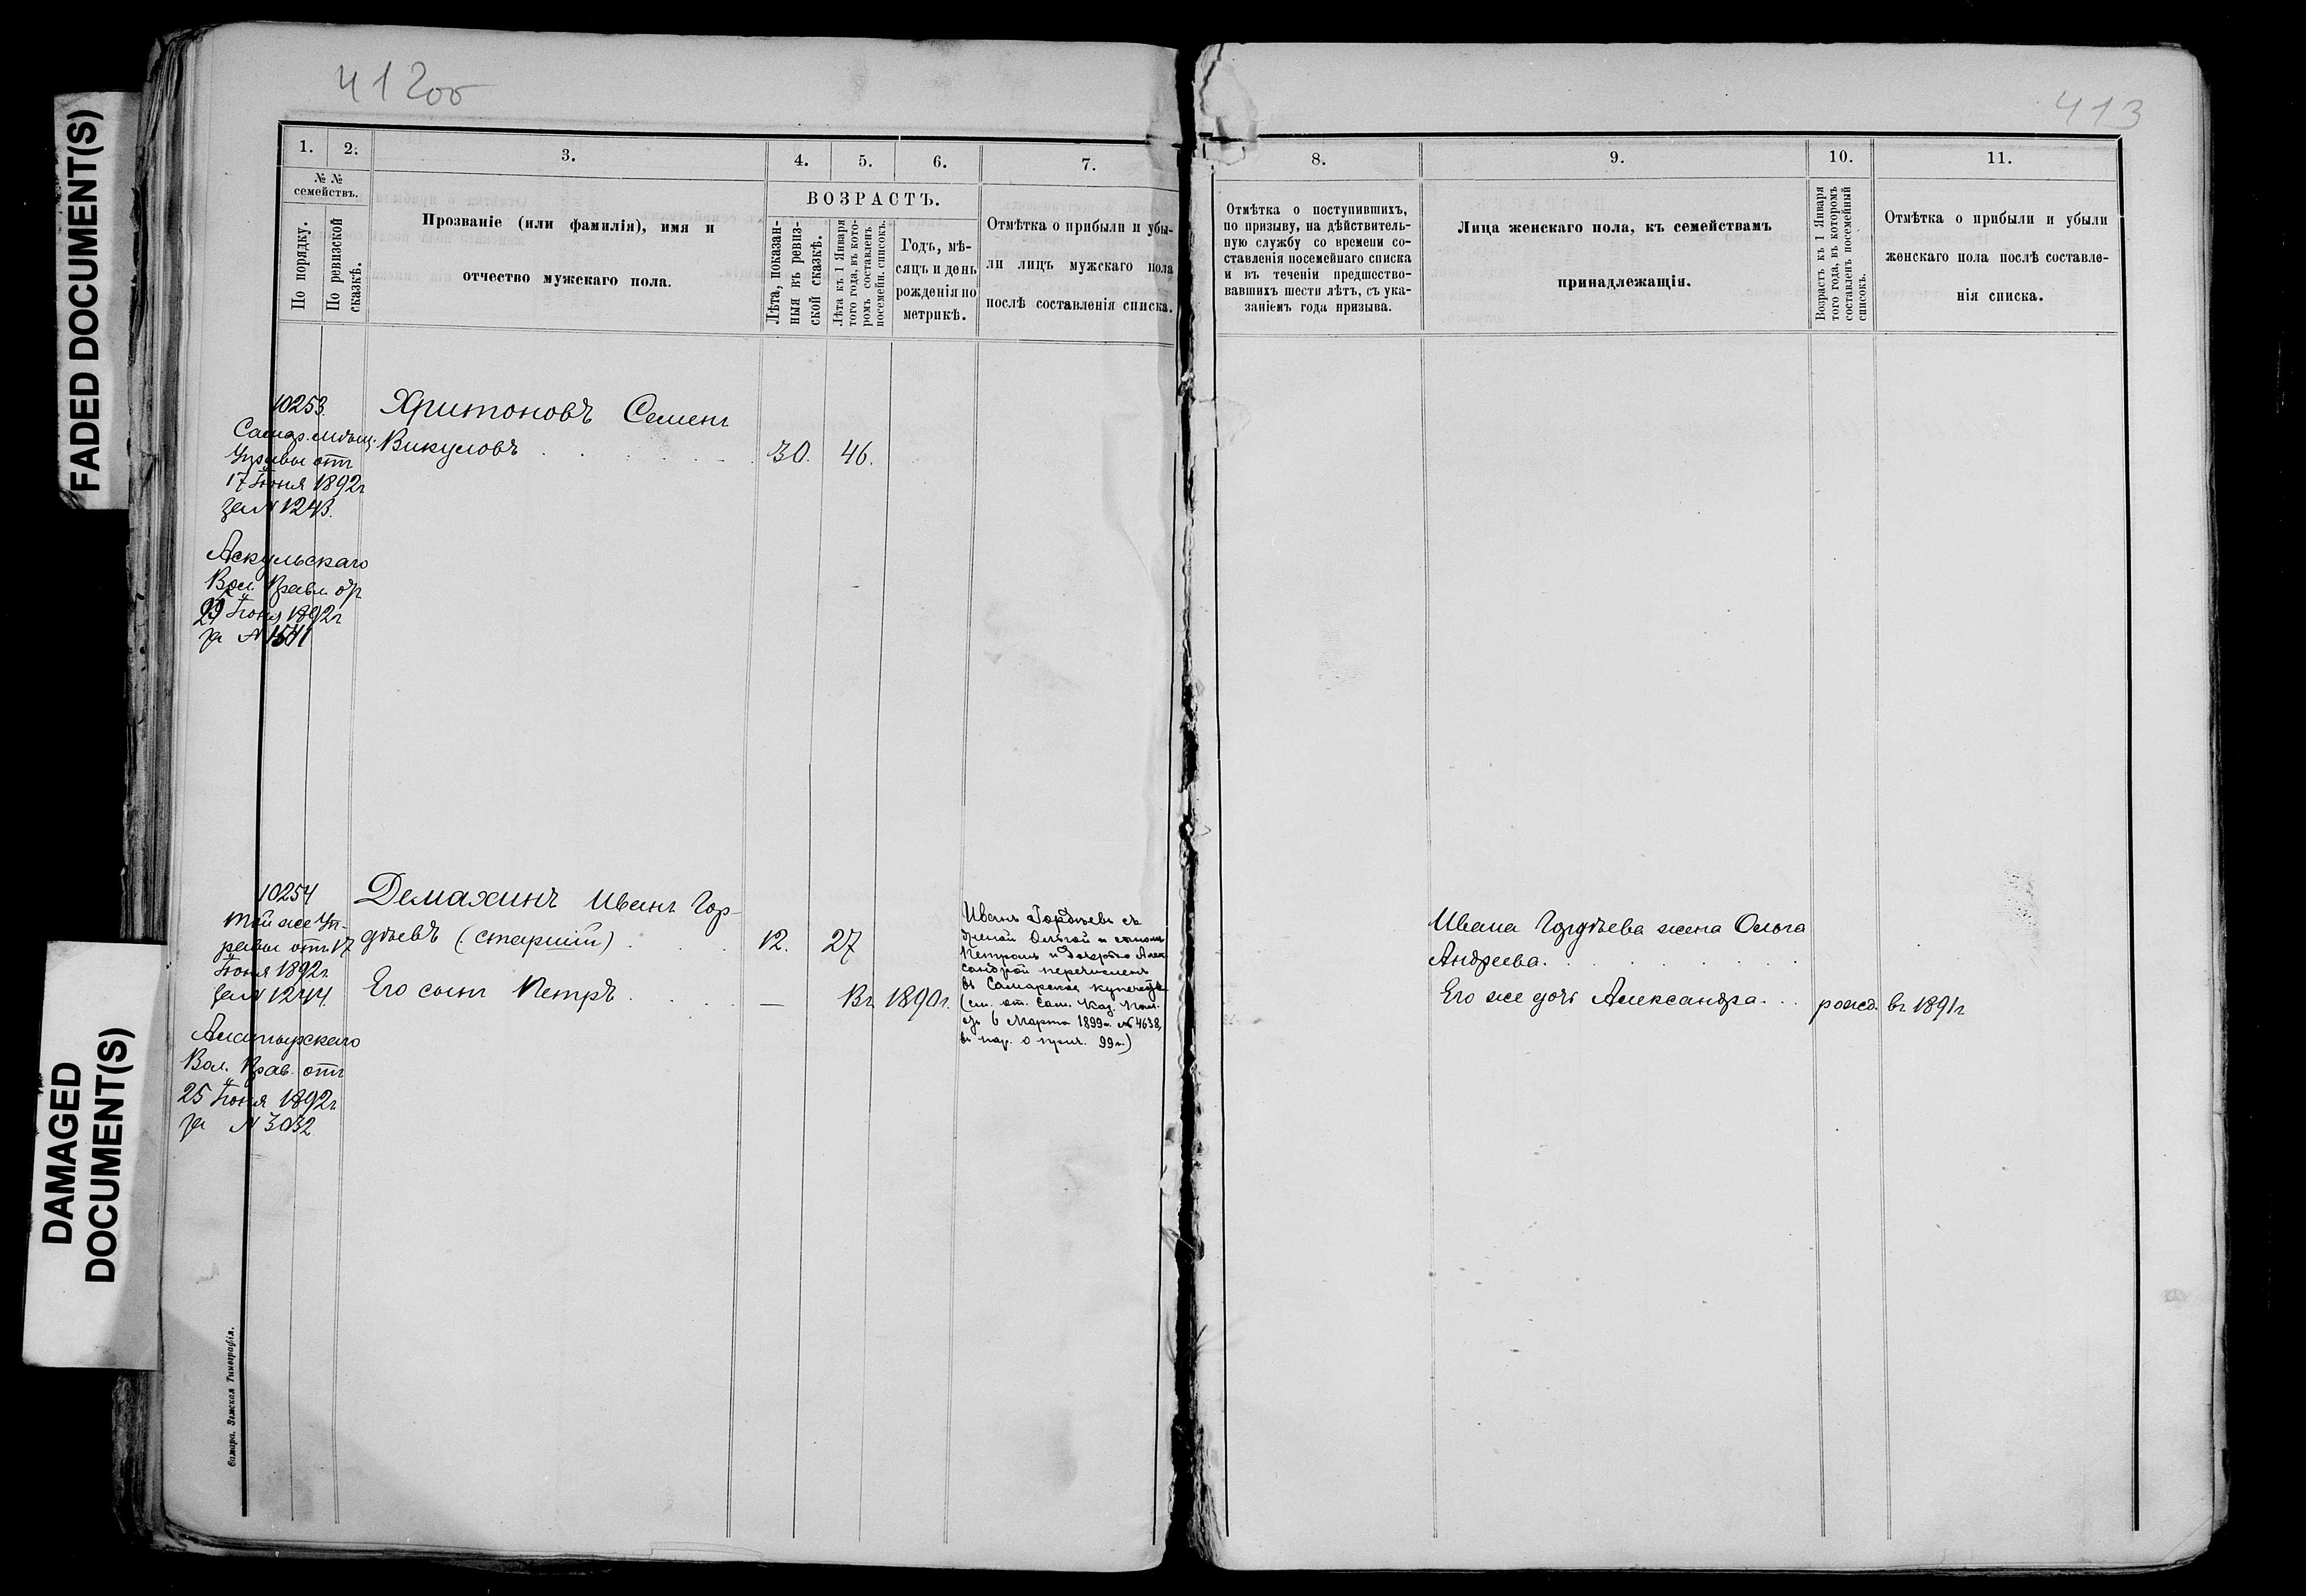 FADED DOCUMENT(S)
DAMAGED
DOCUMENT(S)
41200
1.
2.
3.
4.
5.
6.
7.
№ №
семействъ.
По порядку.
По ревизской
сказкѣ.
Прозваніе (или фамилія), имя и
отчество мужскаго пола.
ВОЗРАСТЪ.
Лѣта, показан-
ныя въ ревиз-
ской сказкѣ.
Лѣта къ 1 Января
того года, въ кото-
ромъ составленъ
посемейн. списокъ.
Годъ, мѣ-
сяцъ и день
рожденія по
метрикѣ.
Отмѣтка о прибыли и убы-
ли лицъ мужскаго пола
послѣ составленія списка.
10253.
Самар. мѣщ.
Управы отъ
17 Іюня 1892г
за N 1243.
Аскульскаго
Вол. Правл. отъ
29 Іюня 1892г
за N 1541
Хритоновъ Семенъ
Викуловъ
30.
46.
10254
той же Уп-
равы отъ 17
Іюня 1892г.
за N 1244.
Алатырскаго
Вол. Прав. отъ
25 Іюня 1892г
за N 3032
Демахинъ Иванъ Гор-
дѣевъ (старшій)
12.
27
Его сынъ Петръ
—
Въ 1890г.
Иванъ Гордѣевъ съ
женой Ольгой и сыномъ
Петромъ и дочерью Алек
сандрой перечисленъ
въ Самарское купечество
(см. от. Сам. Каз. Пал.
отъ 6 Марта 1899г. № 4638,
въ нар. о прич. 99г.)
Самара. Земская Типографія.
413
8.
9.
10.
11.
Отмѣтка о поступившихъ,
по призыву, на дѣйствитель-
ную службу со времени со-
ставленія посемейнаго списка
и въ теченіи предшество-
вавшихъ шести лѣтъ, съ ука-
заніемъ года призыва.
Лица женскаго пола, къ семействамъ
принадлежащія.
Возрастъ къ 1 Января
того года, въ которомъ
составленъ посемейный
списокъ.
Отмѣтка о прибыли и убыли
женскаго пола послѣ составле-
нія списка.
Ивана Гордѣева жена Ольга
Андреева.
Его же дочь Александра
рожд. въ 1891г